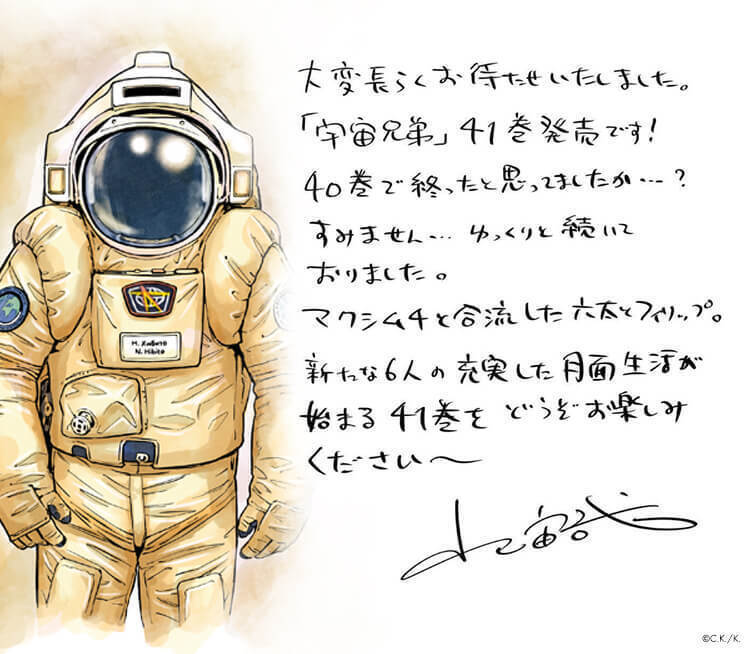 大変長らくお待たせいたしました。
「宇宙兄弟」41巻発売です！
40巻で終ったと思ってましたか…？
すみません… ゆっくりと続いて
おりました。
マクシム4と合流した六太とフィリップ。
新たな6人の充実した月面生活が
始まる41巻をどうぞお楽しみ
ください〜
N. Hibito
©C.K./K.